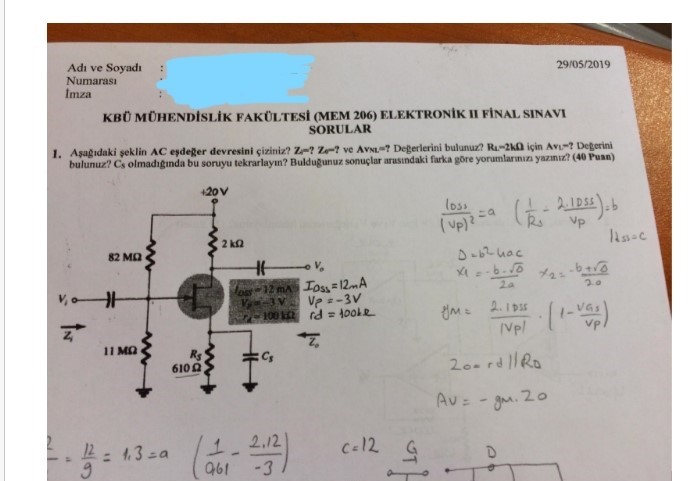 29/05/2019
Adı ve Soyadı :
Numarası :
İmza :
KBÜ MÜHENDİSLİK FAKÜLTESİ (MEM 206) ELEKTRONİK II FİNAL SINAVI
SORULAR
1. Aşağıdaki şeklin AC eşdeğer devresini çiziniz? Zi=? Zo=? ve AVNL=? Değerlerini bulunuz? RL=2kΩ için AVL=? Değerini
bulunuz? CS olmadığında bu soruyu tekrarlayın? Bulduğunuz sonuçlar arasındaki farka göre yorumlarınızı yazınız? (40 Puan)
+20 V
2 kΩ
82 MΩ
Vo
Vi
IDSS = 12 mA
VP = -3 V
rd = 100 kΩ
IDSS = 12mA
Vp = -3V
rd = 100k
Zi
Zo
11 MΩ
RS
610 Ω
CS
IDSS / (Vp)² = a (1/Rs - 2.IDSS/Vp) = b
IDSS = c
D = b² - 4ac
x1 = -b-√D / 2a x2 = -b+√D / 2a
gm = 2.IDSS / |Vp| . (1 - VGS/Vp)
Zo = rd // RD
AV = - gm. Zo
= 12/9 = 1,3 = a (1/0,61 - 2.12/-3) c = 12 G D